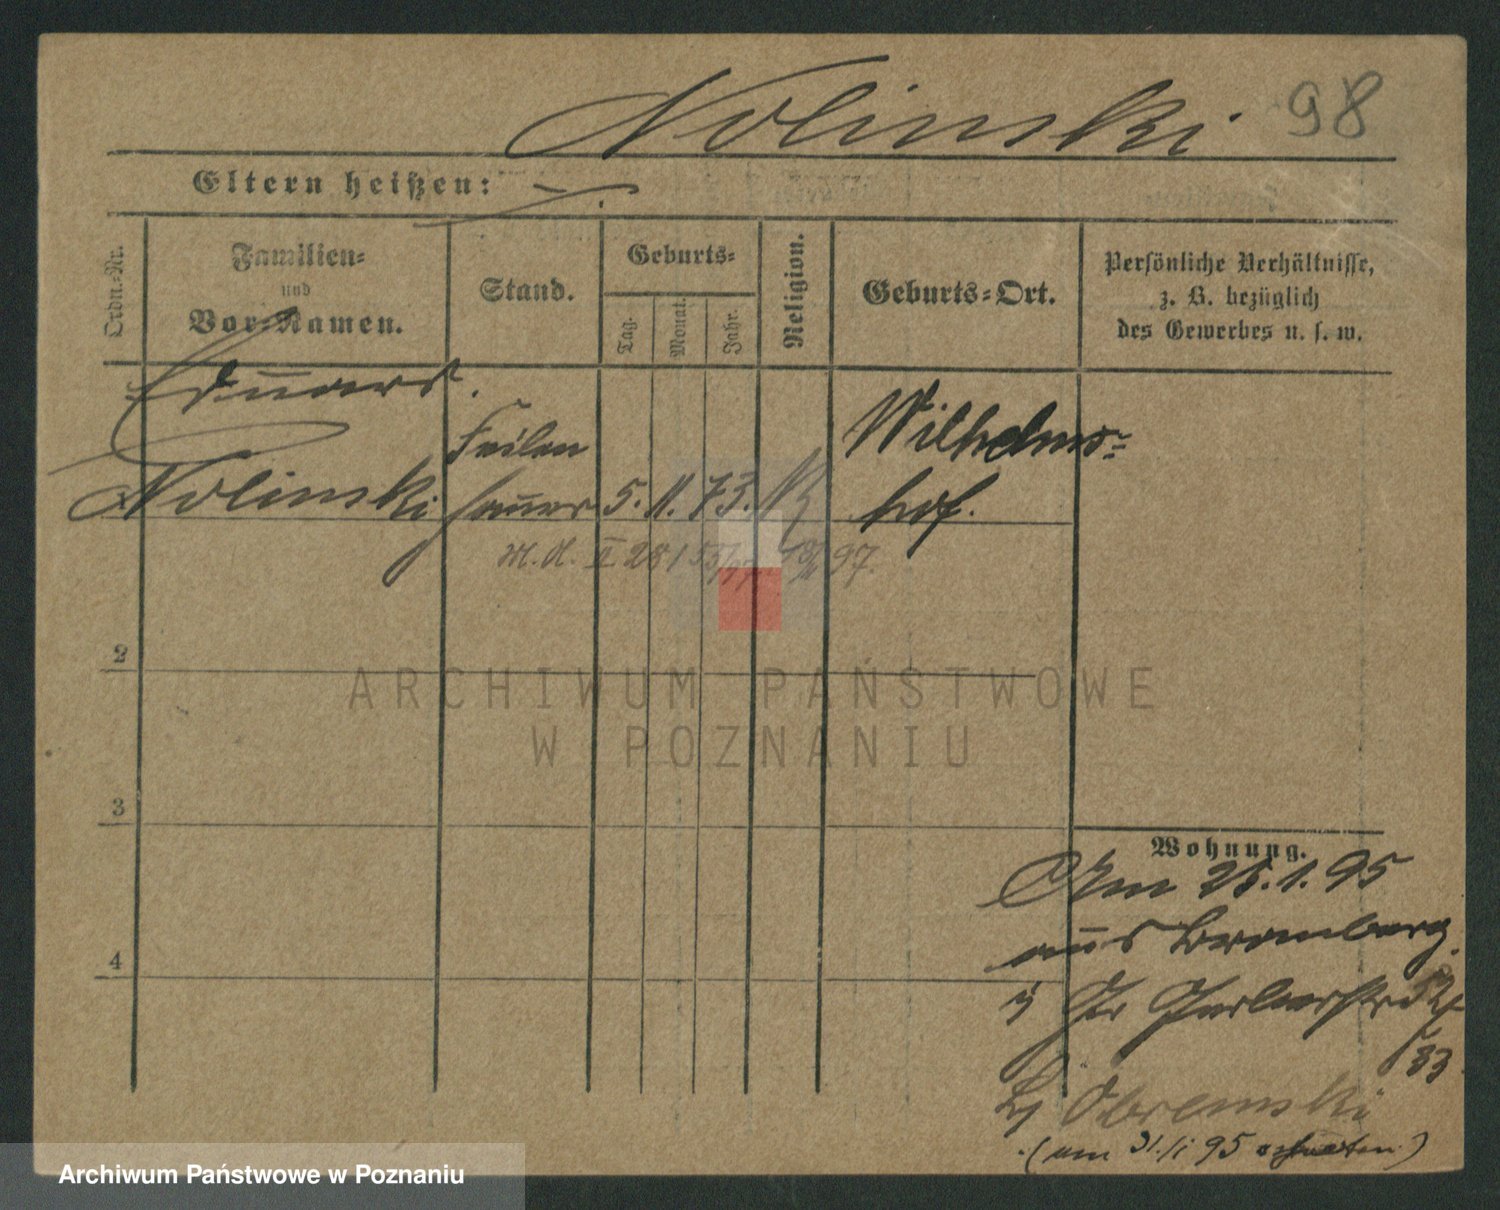 Nolinski 98
Eltern heißen:
Ordn.-Nr.
Familien-
und
Vor-Namen.
Stand.
Geburts-
Tag.
Monat.
Jahr.
Religion.
Geburts-Ort.
Persönliche Verhältnisse,
z. B. bezüglich
des Gewerbes u. s. w.
Eduard
Nolinski
Feilen
hauer
5. 11. 73.
Wilhelms-
hof.
2
3
4
Wohnung.
Am 25.1.95
aus Bromberg
Gr Gerberstr
33
Obremski
(am 31/1 95)
ARCHIWUM PAŃSTWOWE
W POZNANIU
Archiwum Państwowe w Poznaniu